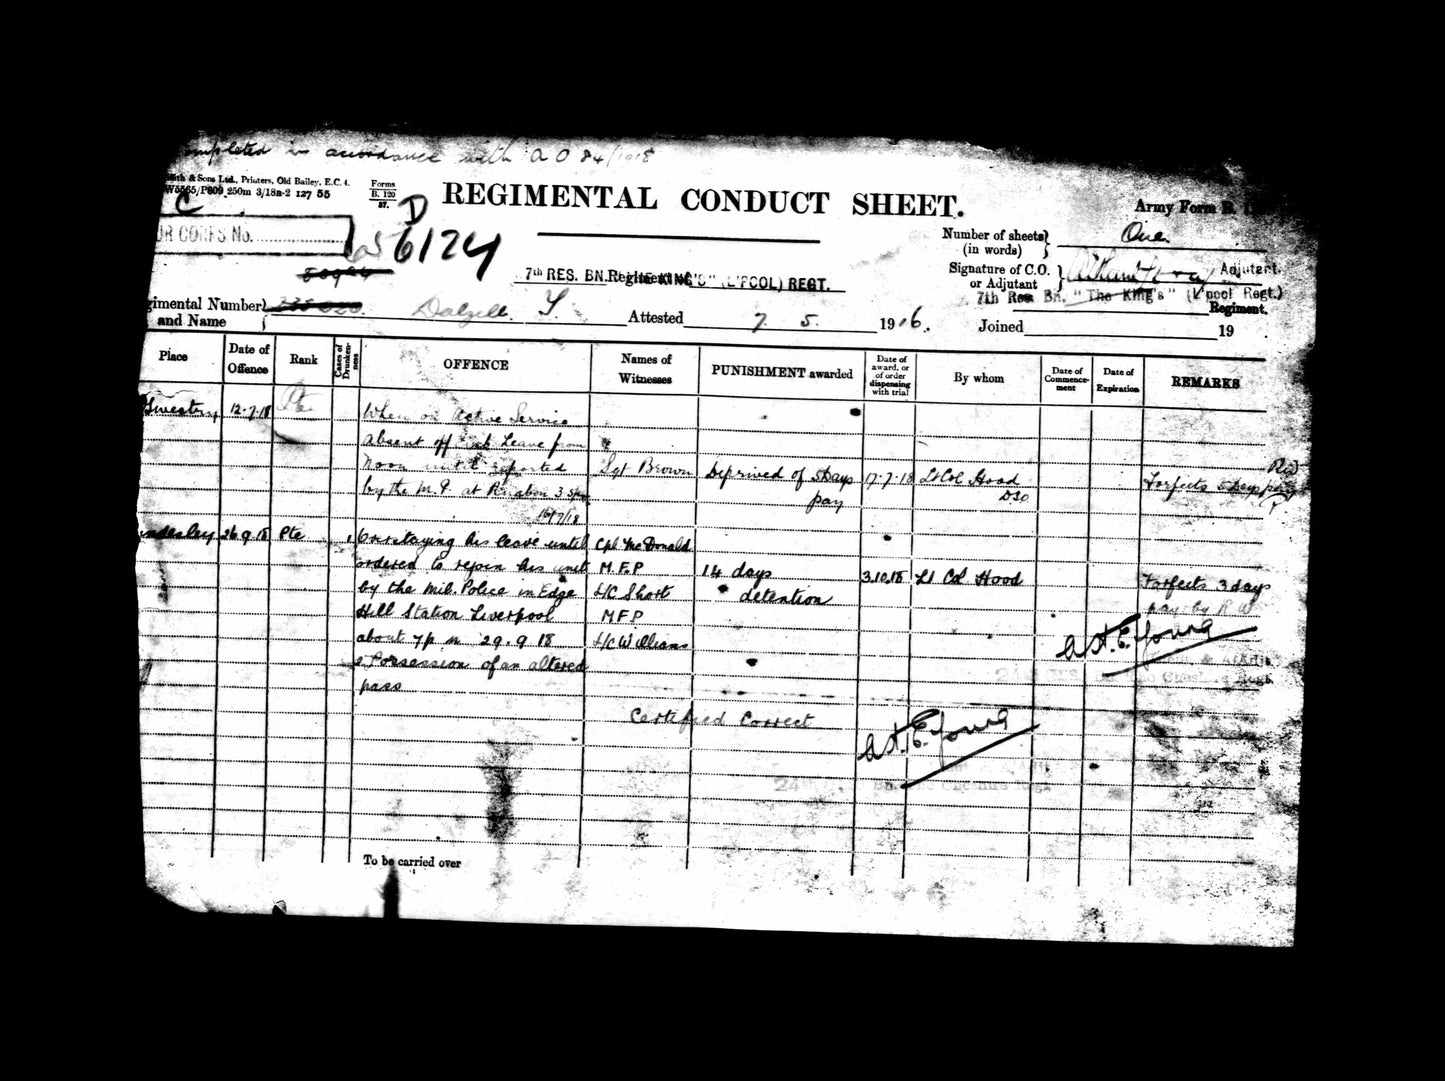 completed in accordance with A O 84/1918
& Sons Ltd., Printers, Old Bailey, E.C. 4.
W5565/P809 250m 3/18s-2 127 55
Forms
B. 120
37.
C
D
REGIMENTAL CONDUCT SHEET.
Army Form B.
CORPS No.
56124
Number of sheets
(in words)
One.
Signature of C.O.
or Adjutant
Adjutant.
7th Res Bn. "The King's" (L'pool Regt.)
Regiment.
7th RES. BN. Regiment "THE KING'S" (L'POOL) REGT.
Regimental Number
and Name
Dalzell. Y.
Attested 7 5. 1916.
Joined 19
Place
Date of Offence
Rank
Cases of Drunkenness
OFFENCE
Names of Witnesses
PUNISHMENT awarded
Date of award, or of order dispensing with trial
By whom
Date of Commencement
Date of Expiration
REMARKS
12.7.18 Pte When on Active Service
absent off Leave from
Noon until reported Sgt Brown Deprived of 5 Days 17.7.18 Lt Col Hood Forfeits 5 days pay
by the M.P. at abon 3 pay DSO
16/7/18
26.9.18 Pte 1 Overstaying his leave until Cpl McDonald
ordered to rejoin his unit M.F.P 14 days 3.10.18 Lt Col Hood Forfeits 3 days
by the Mil. Police in Edge L/C Short detention pay by R W
Hill Station Liverpool M F P
about 7 p m 29.9.18 L/C Williams A.H.E. Young
2 Possession of an altered
pass
Certified Correct A.H.E. Young
To be carried over